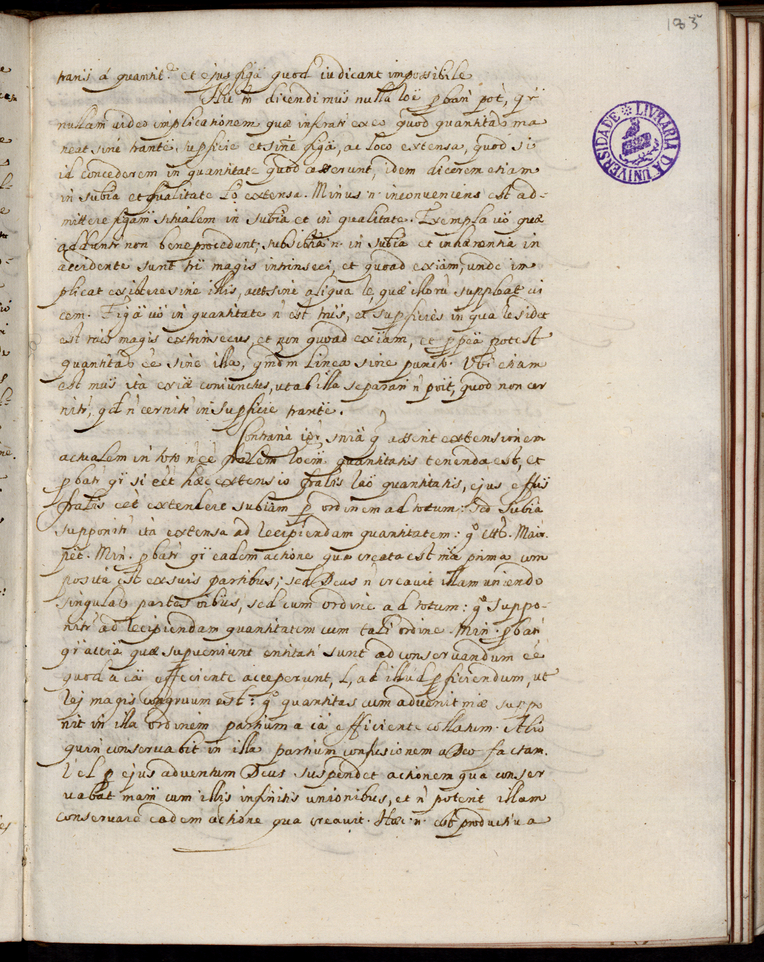 183
LIVRARIA DA UNIVERSIDADE
tranij á quantit. et ejus figã quod iudicant impossibile
Hic tñ dicendi mũs nulla loĩ pbari pot, qr
nullam video implicationem quæ inferati ex eo quod quantitas ma
neat sine trante, supficie et sine figã, ac loco extensa, quod si
id concederem in quantitate quod asserunt, idem dicerem etiam
in subiã et qualitate extensa. Minus n. inconveniens est ad-
mittere figam actualem in subiã et in qualitate. Exempla võ quæ
adduntr non bene procedunt, subsistiã n. in subiã et inhærentia in
accidente sunt magis intrinseci, et quoad exiam, unde im
plicat existere sine illis, aut sine aliqua quæ illorũ suppleat vi
cem. Figã võ in quantitate ñ est, et supficies in qua residet
est magis extrinsecus, et non quoad exiam, et pptã potest
quantitas ẽe sine illa, qmdm linea sine puncto. Ubi etiam
est ita exiæ coniunctus, ut ab illa separari ñ poit, quod non cer
nitr, qd ñ cernitr in supficie.
Contraria igr sniã q asserit extensionem
actualem in toto ñ ẽe quantitatis tenenda est, et
pbatr qr si eẽt hæc extensio quantitatis, ejus
eẽt extendere subiam p ordinem ad totum: sed subiã
supponitr ita extensa ad recipiendam quantitatem: gº. Maior
pet. Min. pbatr qr eadem actione qua creata est mã prima com
posita est ex suis partibus; sed Deus ñ creavit illam uniendo
singulas partes oibus, sed cum ordine ad totum: gº suppo-
nitr ad recipiendam quantitatem cum tali ordine. Min. pbatr
qr acciã quæ superveniunt entitati sunt ad conservandum eẽ
quod a cã efficiente acceperunt, l, ad illud pficiendum, ut
rei magis congruum est: gº quantitas cum advenit mæ suppo
nit in illa ordinem partium a cã efficiente collatum. Alio
quin conservabit in illa partium confusionem a Deo factam.
Vel p ejus adventum Deus suspendet actionem qua conser
vabat mam cum illis infinitis unionibus, et ñ poterit illam
conservare eadem actione qua creavit. Hæc n. est productiva